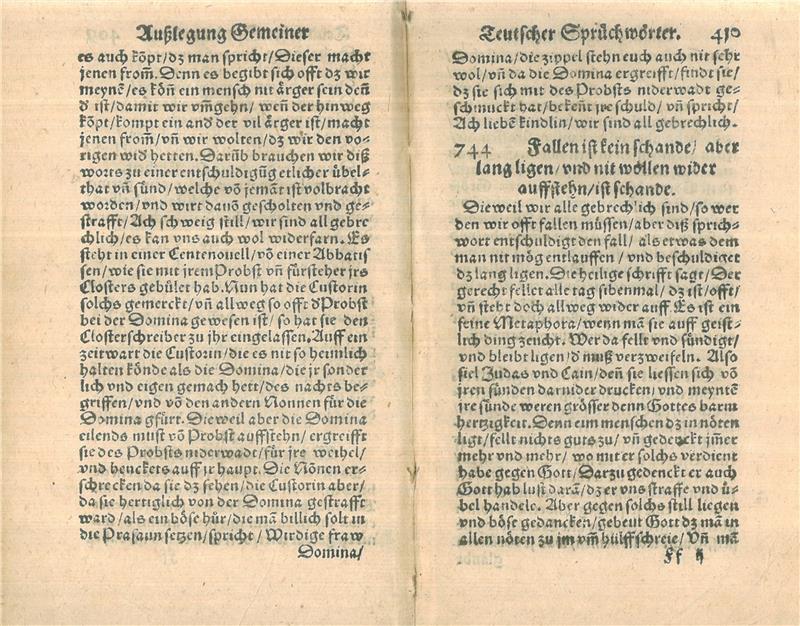 Außlegung Gemeiner
es auch kõpt/dz man spricht/Dieser macht
jenen from̃. Denn es begibt sich offt dz wir
meynẽ/es kõñ ein mensch nit ärger sein deñ
d̕ ist/damit wir vm̃gehn/ weñ der hinweg
kõpt/kompt ein and̕er vil ärger ist/macht
jenen from̃/vñ wir wolten/dz wir den vo-
rigen wid̕ hetten. Darũb brauchen wir diß
worts zu einer entschuldigũg etlicher übel-
that vñ sünd/welche võ jemãt ist volbracht
worden/vnd wirt dauõ gescholten vnd ge-
strafft/Ach schweig still/wir sind all gebre
chlich/es kan vns auch wol widerfarn. Es
steht in einer Centenouell/võ einer Abbatis
sen/wie sie mit jrem Probst vñ fürsteher jrs
Closters gebůlet hab. Nun hat die Custorin
solchs gemerckt/vñ allweg so offt d̕ Probst
bei der Domina gewesen ist/so hat sie den
Closterschreiber zu jhr eingelassen. Auff ein
zeit wart die Custorin/die es nit so heimlich
halten könde als die Domina/die jr sonder
lich vnd eigen gemach hett/des nachts be-
griffen/vnd võ den andern Nonnen für die
Domina gfürt. Dieweil aber die Domina
eilends must võ Probst auffstehn/ergreifft
sie des Probsts niderwadt/für jre weihel/
vnd henckets auff jr haupt. Die Nõnen er-
schrecken da sie dz sehen/die Custorin aber/
da sie hertiglich von der Domina gestrafft
ward/als ein böse hür/die mã billich solt in
die Prasaun setzen/spricht/Wirdige fraw
Domina/
Teutscher Sprüchwörter. 410
Domina/die zippel stehn euch auch nit sehr
wol/vñ da die Domina ergreifft/findt sie/
dz sie sich mit des Probsts niderwadt ge-
schmuckt hat/bekeñt jre schuld/vñ spricht/
Ach liebẽ kindlin/wir sind all gebrechlich.
744 Fallen ist kein schande/ aber
lang ligen/vnd nit wöllen wider
auffstehn/ist schande.
Dieweil wir alle gebrechlich sind/so wer
den wir offt fallen müssen/aber diß sprich-
wort entschuldigt den fall/als etwas dem
man nit mög entlauffen/vnd beschuldiget
dz lang ligen. Die heilige schrifft sagt/Der
gerecht fellet alle tag sibenmal/dz ist/offt/
vñ steht doch allweg wider auff. Es ist ein
feine Metaphora/wenn mã sie auff geist-
lich ding zeucht. Wer da fellt vnd sündigt/
vnd bleibt ligen/d̕ můß verzweifeln. Also
fiel Judas vnd Cain/deñ sie liessen sich võ
jren sünden darnider drucken/vnd meyntẽ
jre sünde weren grösser denn Gottes barm
hertzigkeit. Denn eim menschen dz in nöten
ligt/fellt nichts guts zu/vñ gedenckt jm̃er
mehr vnd mehr/wo mit er solchs verdient
habe gegen Gott/Darzu gedenckt er auch
Gott hab lust darã/dz er vns straffe vnd ü-
bel handele. Aber gegen solchs still liegen
vnd böse gedancken/gebeut Gott dz mã in
allen nöten zu jm vm̃ hülff schreie/Vñ mã
Ff ij